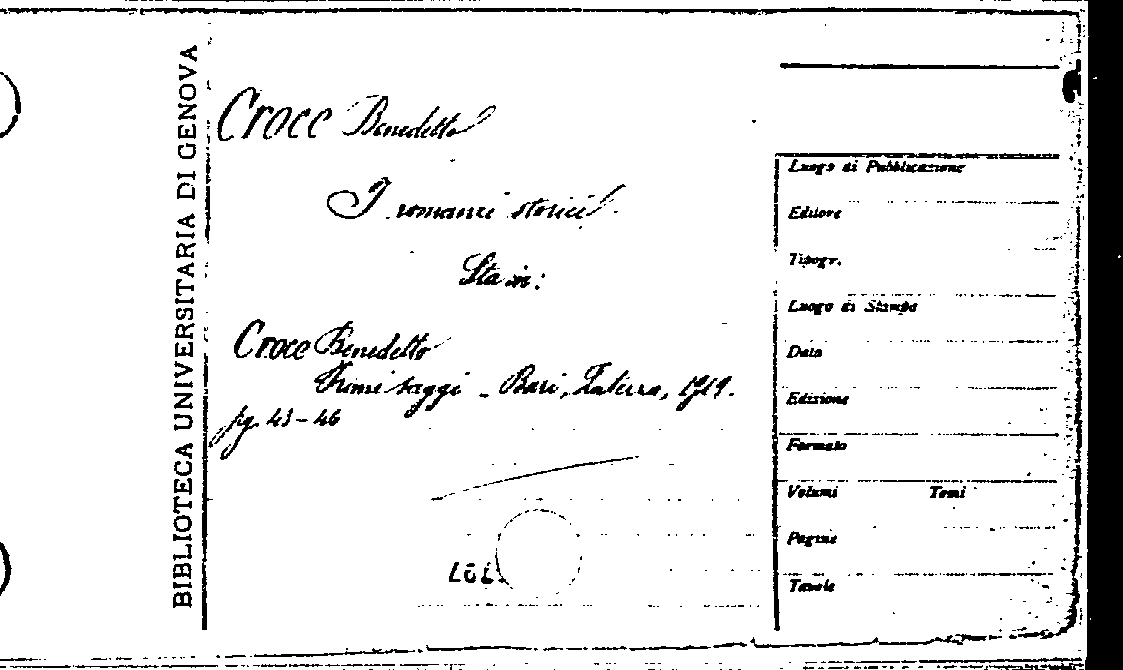 BIBLIOTECA UNIVERSITARIA DI GENOVA
Croce Benedetto
I romanzi storici.
Sta in:
Croce Benedetto
Primi saggi - Bari, Laterza, 1919.
pg. 43-46
Luogo di Pubblicazione
Editore
Tipogr.
Luogo di Stampa
Data
Edizione
Formato
Volumi Tomi
Pagine
Tavole